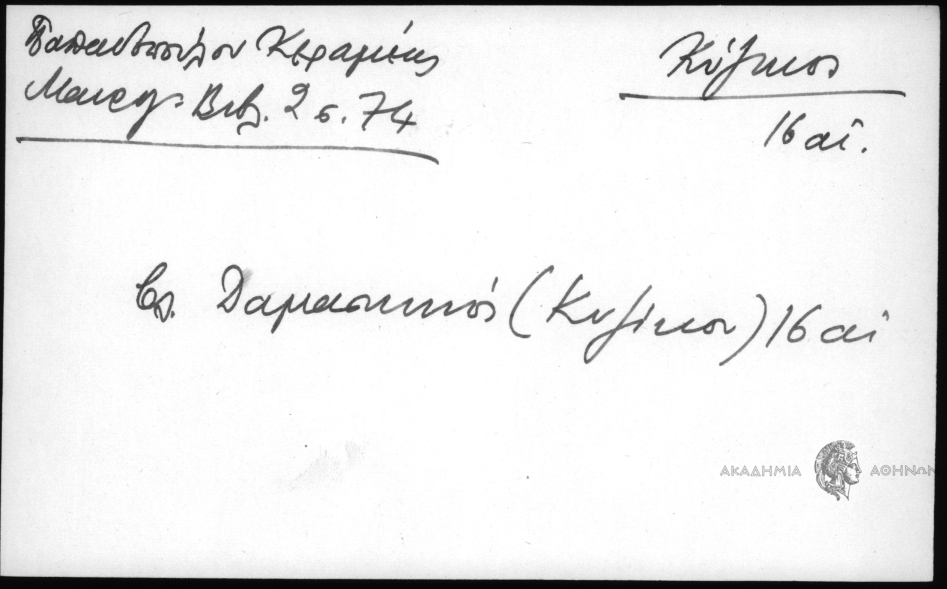 Παπαδοπούλου Κεραμέως
Μαυρογ. Βιβ. 2 σ. 74
Κύζικος
16 αἰ.
βλ. Δαμασκηνός (Κυζίκου) 16 αἰ
ΑΚΑΔΗΜΙΑ ΑΘΗΝΩΝ